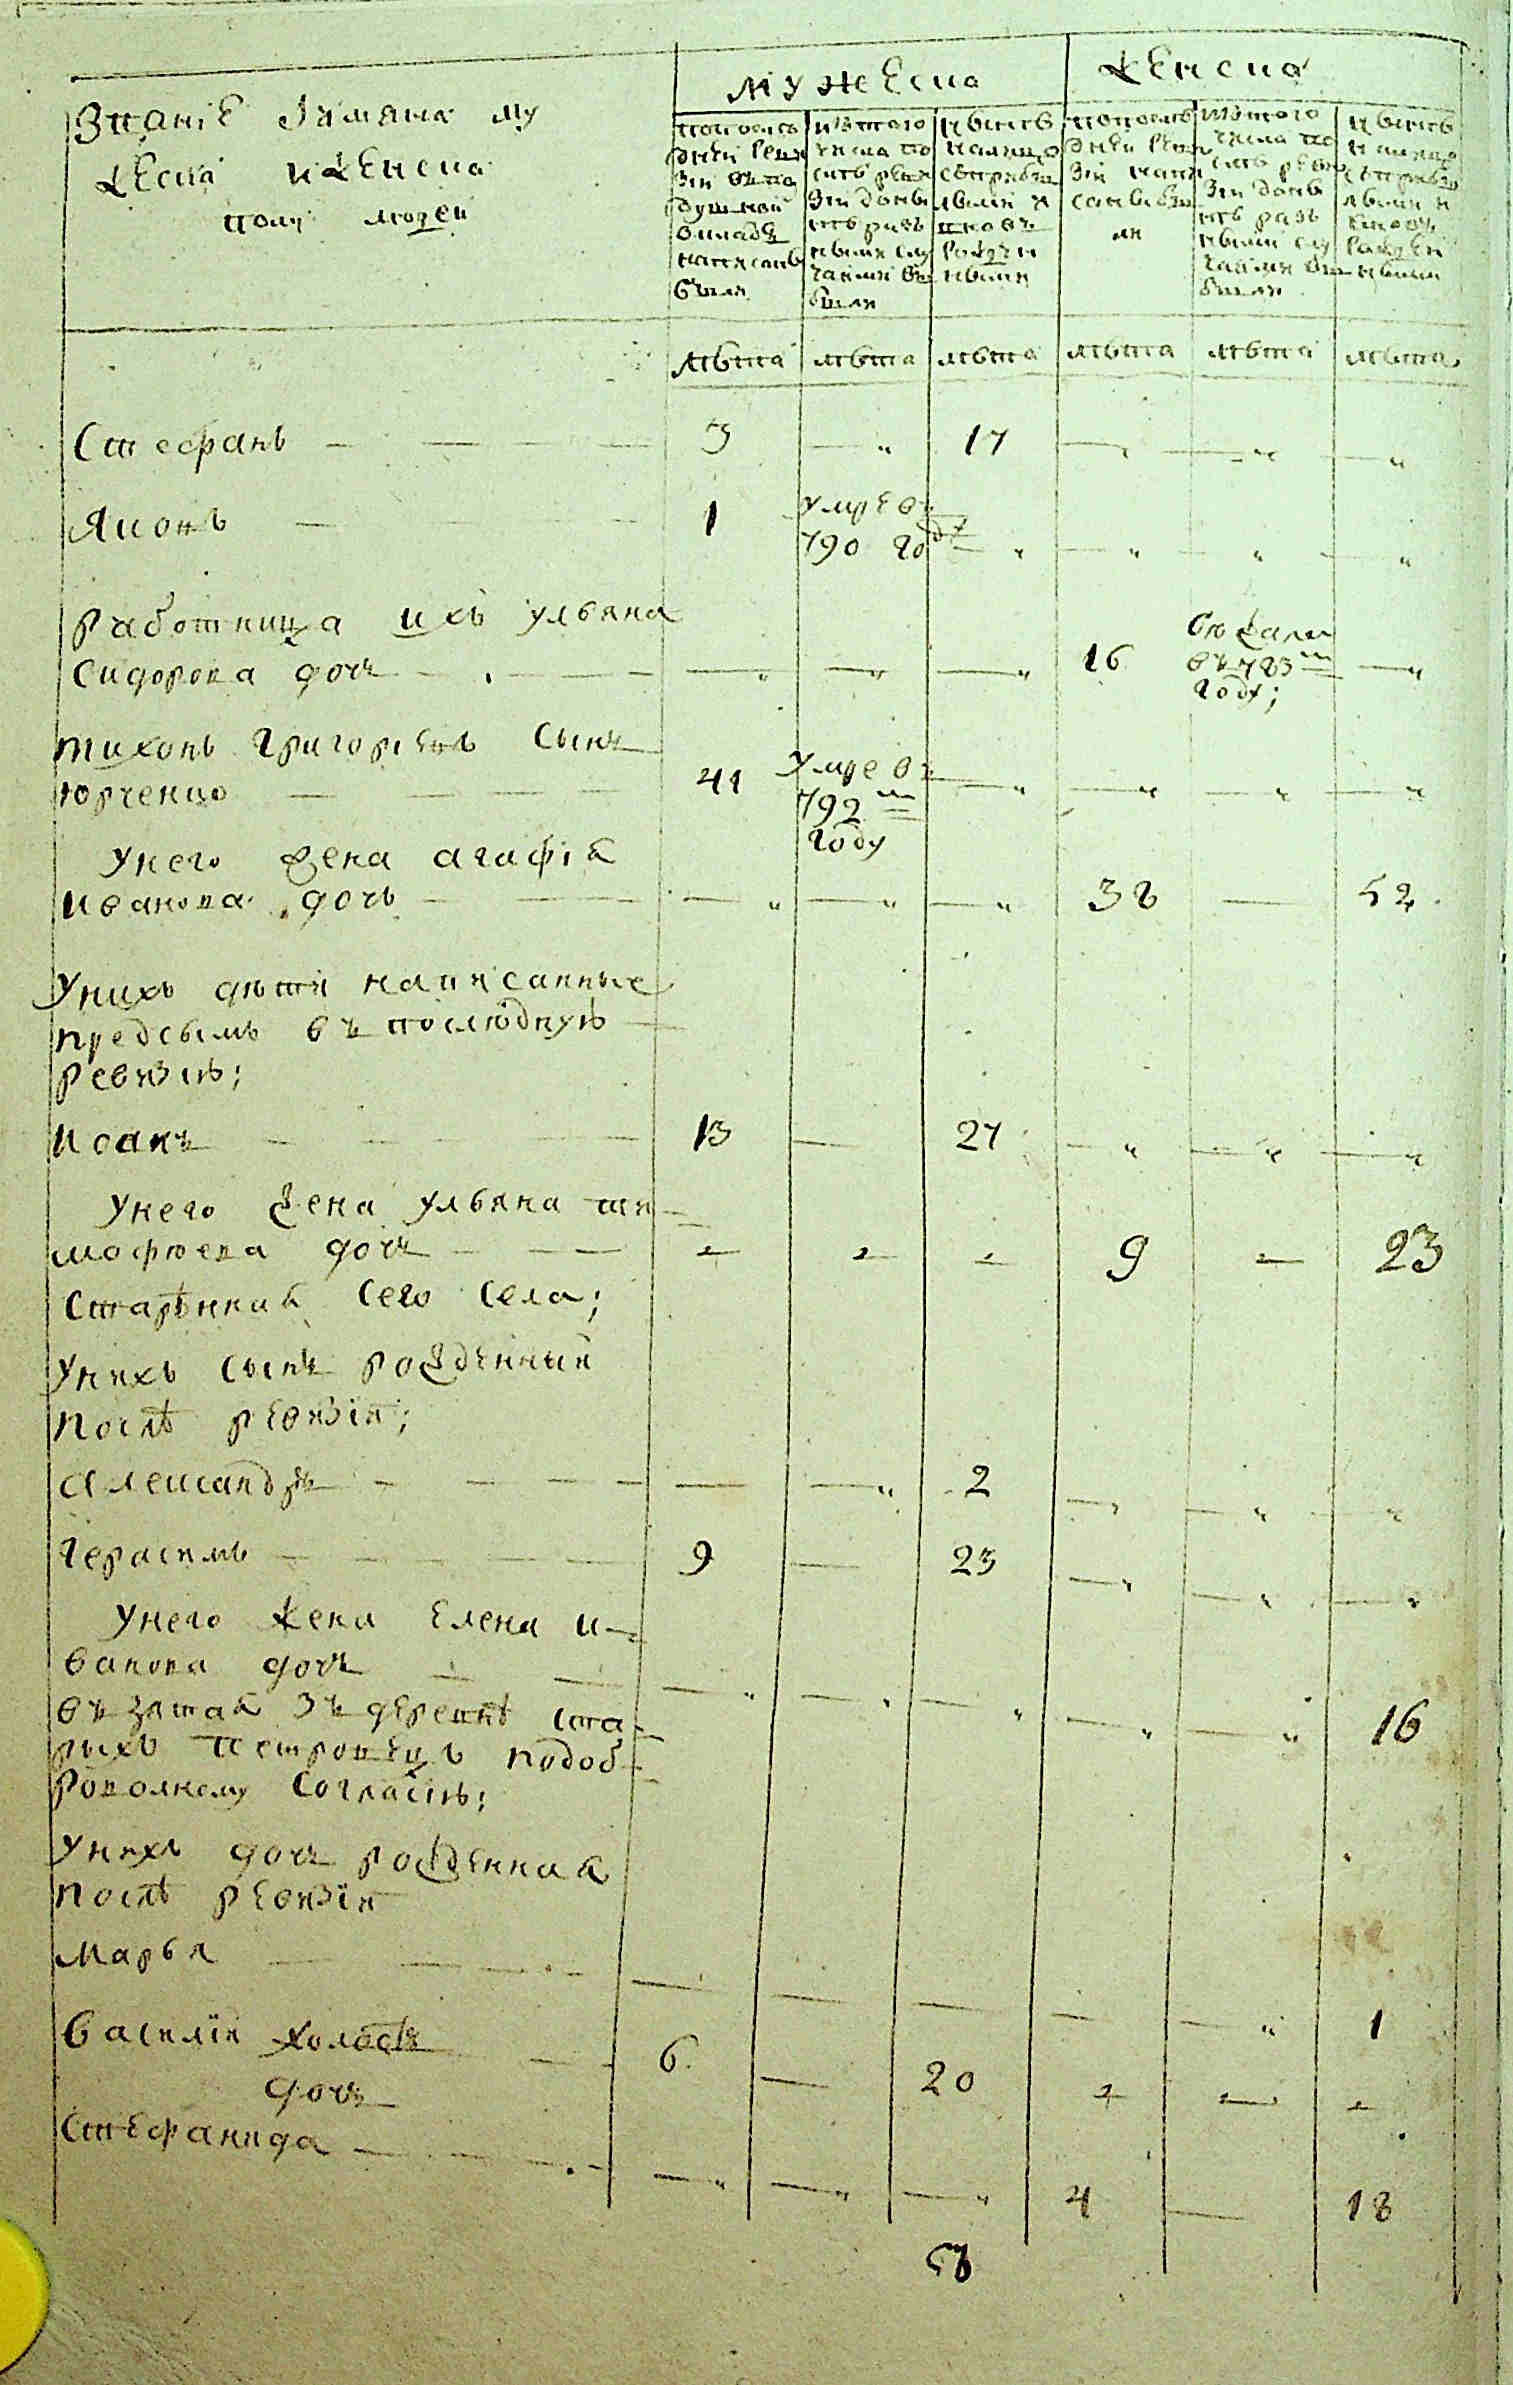 Званіе Имяна му
жеска и женска
полу людей
мужеска
женска
по послѣ
дней реви
зіи въ по
душной
окладъ
написанъ
были
изъ того
числа по
сихъ реви
зіи до ны
нѣ разъ
ными слу
чаями вы
были
нынѣ
на лицо
съ прибы
лыми и
вновь
рожде
ными
по послѣ
дней реви
зіи напи
саны бы
ли
изъ того
числа по
сихъ реви
зіи до ны
нѣ разъ
ными слу
чаями вы
были
нынѣ
на лицо
съ прибы
лыми и
вновь
рожде
ными
лѣта лѣта лѣта лѣта лѣта лѣта
Стефанъ 3 17
Яковъ 1 умре въ
790 годѣ
работница ихъ ульяна
Сидорова дочь 16 бѣжала
въ 783м
году;
тихонъ григориевъ сынъ
юрченко 41 умре въ
792м
году
у него жена агафія
иванова дочь 38 52
у нихъ дѣти написанные
предъ сымъ въ послѣдную
ревизію;
иванъ 13 27
у него жена ульяна ти
мофѣева дочь 9 23
старѣнная сего села;
у нихъ сынъ рожденный
послѣ ревизіи;
александръ 2
герасимъ 9 23
у него жена елена и
ванова дочь
въ зятая зъ деревнѣ ста
рыхъ петровецъ по доб
ровольному согласію; 16
у нихъ дочь рожденная
послѣ ревизіи
марья 1
василій холостъ 6 20
дочь
стефанида 4 18
58